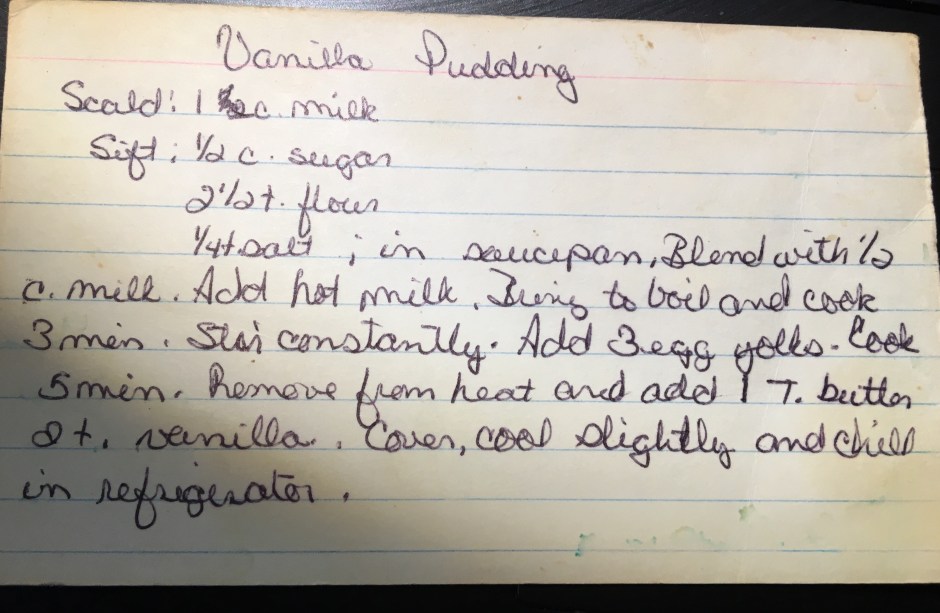 Vanilla Pudding
Scald: 1 c. milk
Sift: 1/2 c. sugar
2 1/2 t. flour
1/4 t. salt ; in saucepan, Blend with 1/2
c. milk. Add hot milk. Bring to boil and cook
3 min. Stir constantly. Add 3 egg yolks. Cook
5 min. Remove from heat and add 1 T. butter
2 t. vanilla. Cover, cool slightly and chill
in refrigerator.